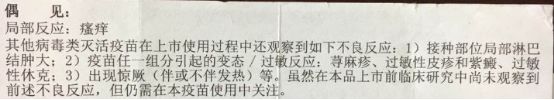 偶　见：
局部反应：瘙痒
其他病毒类灭活疫苗在上市使用过程中还观察到如下不良反应：1）接种部位局部淋巴
结肿大；2）疫苗任一组分引起的变态／过敏反应：荨麻疹、过敏性皮疹和紫癜、过敏
性休克；3）出现惊厥（伴或不伴发热）等。虽然在本品上市前临床研究中尚未观察到
前述不良反应，但仍需在本疫苗使用中关注。